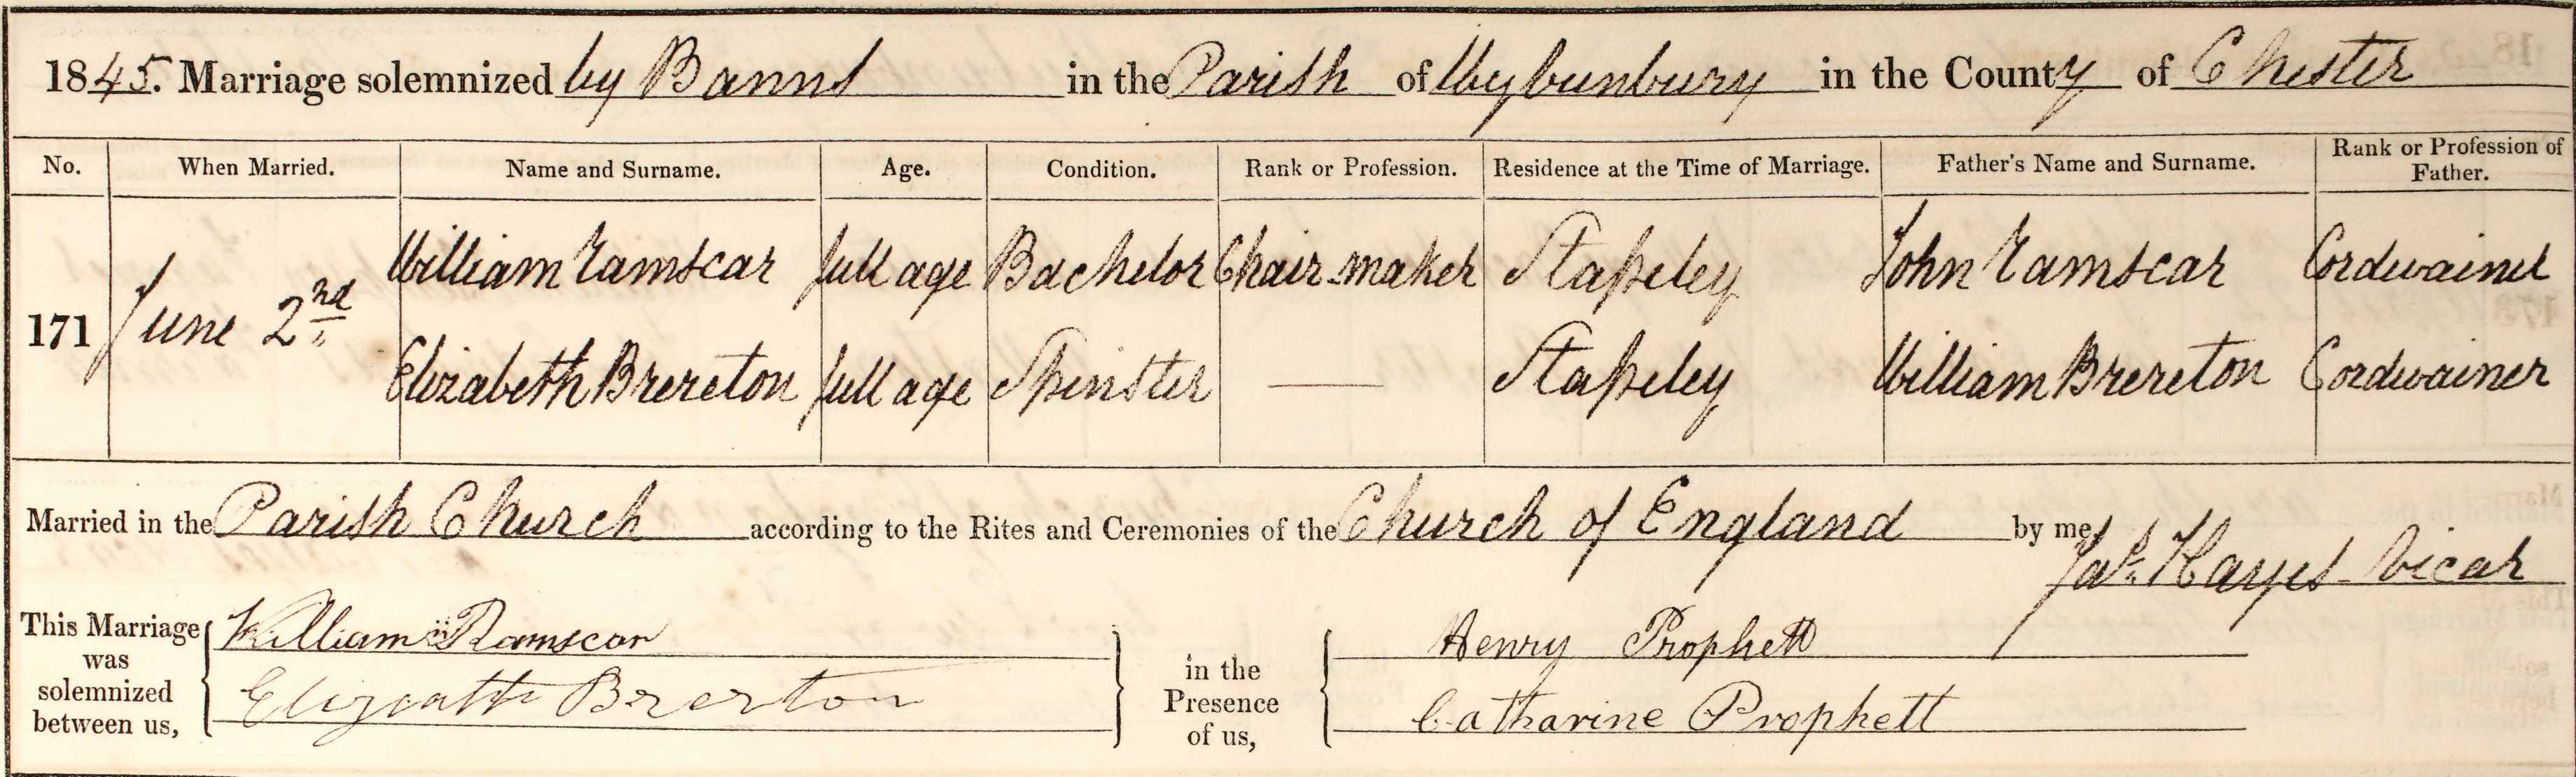 1845. Marriage solemnized by Banns in the Parish of Wybunbury in the County of Chester
No. When Married. Name and Surname. Age. Condition. Rank or Profession. Residence at the Time of Marriage. Father's Name and Surname. Rank or Profession of Father.
William Ramscar full age Bachelor Chair-maker Stapeley John Ramscar Cordwainer
171 June 2nd
Elizabeth Brereton full age Spinster — Stapeley William Brereton Cordwainer
Married in the Parish Church according to the Rites and Ceremonies of the Church of England by me,
Jas. Hayes Vicar
This Marriage was solemnized between us,
William Ramscar
Elizeatth Brerton
in the Presence of us,
Henry Prophett
Catharine Prophett